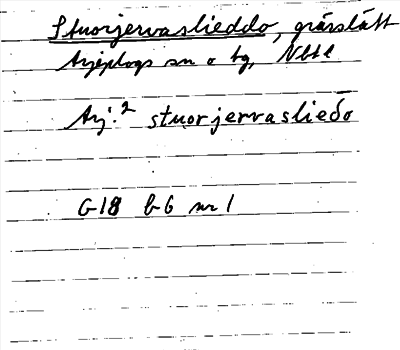 Stuorjervaslieddo, grässlått
Arjeplogs sn o tg, Nbtl
Arj.² stuorjervaslieδo
G18 b6 nr 1